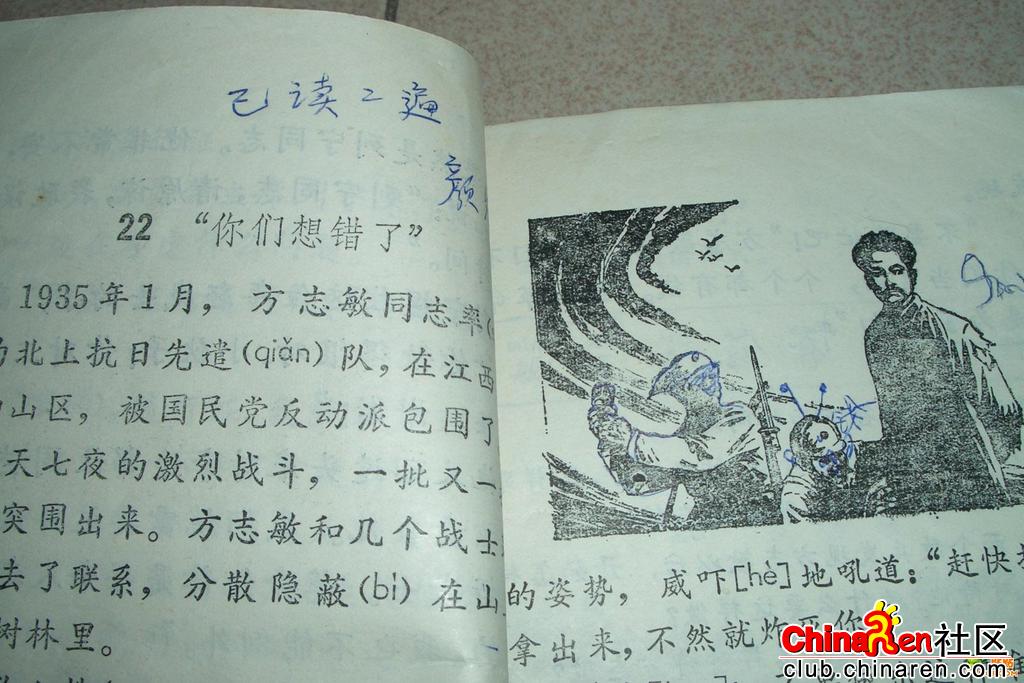 已读二遍
颜
22 “你们想错了”
1935年1月，方志敏同志率
北上抗日先遣(qiǎn)队，在江西
山区，被国民党反动派包围了
天七夜的激烈战斗，一批又一
突围出来。方志敏和几个战士
去了联系，分散隐蔽(bì)在山
树林里。
的姿势，威吓[hè]地吼道：“赶快
拿出来，不然就炸死你
ChinaRen社区
club.chinaren.com